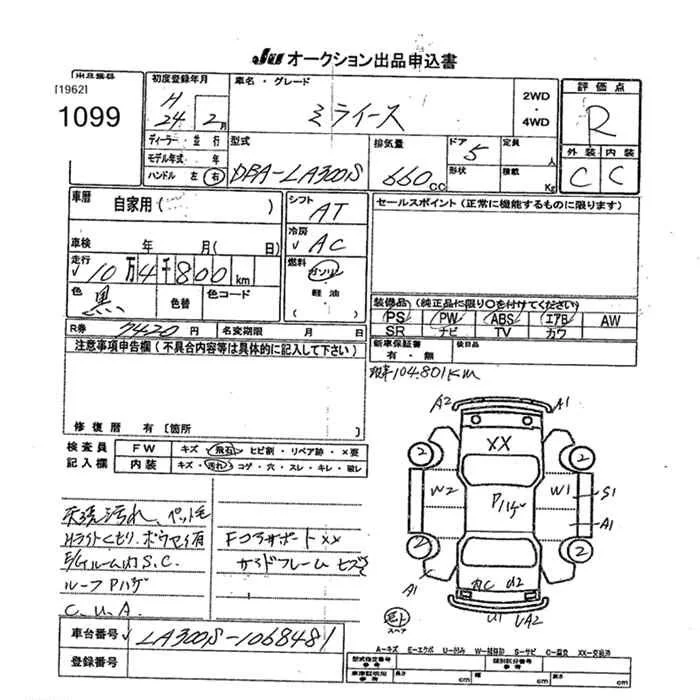 JU オークション出品申込書
出品番号
[1962]
1099
初度登録年月
H
24 2月
ディーラー・並行
モデル年式・年
ハンドル 左 右
車名・グレード
ミライース
2WD
・
4WD
評価点
R
外装 内装
C C
型式
DBA-LA300S
排気量
660cc
ドア 5
形状
定員 人
積載 Kg
車歴
自家用( )
車検 年 月( 日)
走行
√10万4千800km
色 黒
色替
色コード
R券 7420円
名変期限 月 日
シフト
AT
冷房
√AC
燃料
ガソリン
・
軽油
( )
セールスポイント(正常に機能するものに限ります)
装備品(純正品に限り○を付けてください)
PS PW ABS エアB AW
SR ナビ TV カワ
新車保証書
有・無
後日品
注意事項申告欄(不具合内容等は具体的に記入して下さい)
修復歴 有[箇所 ]
104.801km
検査員
記入欄
FW キズ・飛石・ヒビ割・リペア跡・×要
内装 キズ・汚れ・コゲ・穴・スレ・キレ・破レ
汚れ、ペット毛
Hライトくもり、
ルーム内S.C.
ルーフPハゲ
C.U.A.
Fコアサポートxx
サイドフレーム
A2 A1
XX
2 2
W2 Pハゲ W1 S1
A1
2 2
A1
AC U2
U1 A2
スペア
車台番号 √LA300S-1068481
登録番号
A−キズ E−エクボ U−凹み W−補修跡 S−サビ C−腐食 XX−交換済
型式指定番号
参考
類別区分番号
参考
車庫証明用
参考
長さ cm 幅 cm 高さ cm